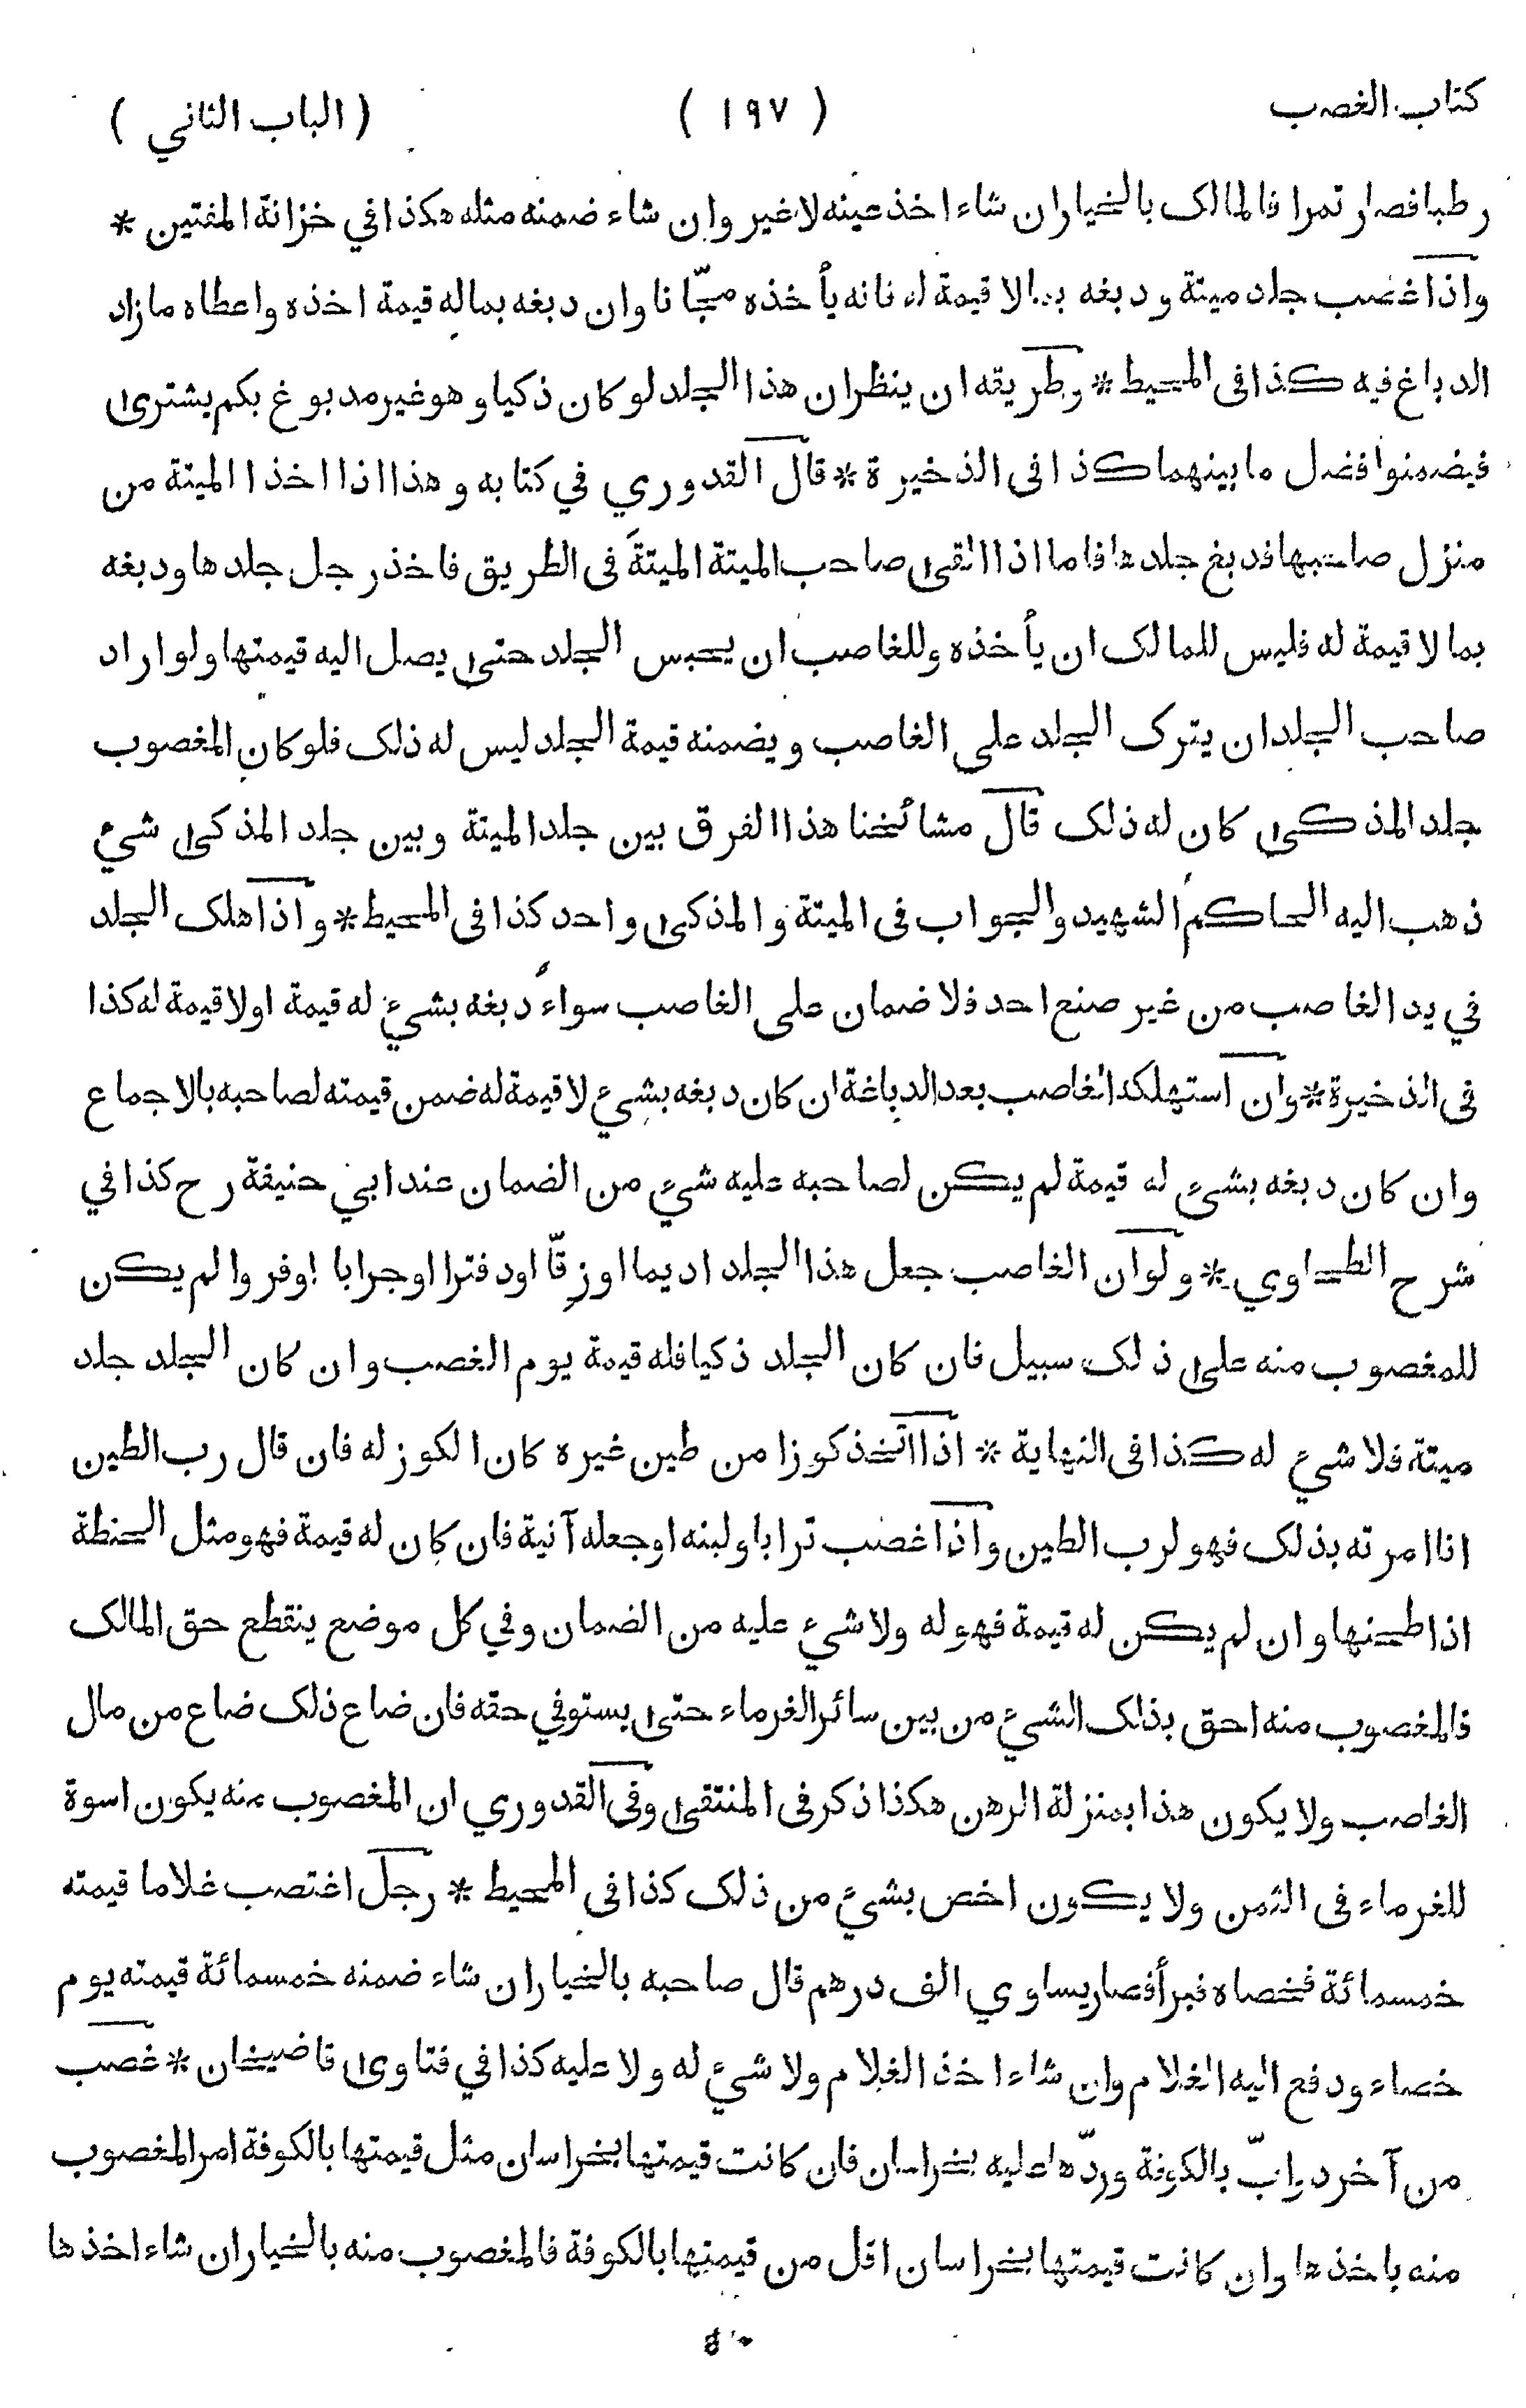 كتاب الغصب ( ١٩٧ ) ( الباب الثاني )
رطبا فصار تمرا فالمالك بالخيار ان شاء اخذ عينه لا غير وان شاء ضمنه مثله هكذا في خزانة المفتين *
واذا غصب جلد ميتة ودبغه بما لا قيمة له فانه يأخذه مجّانا وان دبغه بماله قيمة اخذه واعطاه ما زاد
الدباغ فيه كذا فى المحيط * وطريقه ان ينظر ان هذا الجلد لو كان ذكيا وهو غير مدبوغ بكم يشترى
فيضمنوا فضل ما بينهما كذا فى الذخيرة * قال القدوري في كتابه وهذا اذا اخذ الميتة من
منزل صاحبها فدبغ جلدها فاما اذا القى صاحب الميتة الميتة فى الطريق فاخذ رجل جلدها ودبغه
بما لا قيمة له فليس للمالك ان يأخذه وللغاصب ان يحبس الجلد حتى يصل اليه قيمتها ولو اراد
صاحب الجلد ان يترك الجلد على الغاصب ويضمنه قيمة الجلد ليس له ذلك فلو كان المغصوب
جلد المذكى كان له ذلك قال مشائخنا هذا الفرق بين جلد الميتة وبين جلد المذكى شيء
ذهب اليه الحاكم الشهيد والجواب فى الميتة والمذكى واحد كذا فى المحيط * واذا هلك الجلد
في يد الغاصب من غير صنع احد فلا ضمان على الغاصب سواء دبغه بشيء له قيمة او لا قيمة له كذا
فى الذخيرة * وان استهلكه الغاصب بعد الدباغة ان كان دبغه بشيء لا قيمة له ضمن قيمته لصاحبه بالاجماع
وان كان دبغه بشيء له قيمة لم يكن لصاحبه عليه شيء من الضمان عند ابي حنيفة رح كذا في
شرح الطحاوي * ولو ان الغاصب جعل هذا الجلد اديما او زقّا او دفترا او جرابا او فروا لم يكن
للمغصوب منه على ذلك سبيل فان كان الجلد ذكيا فله قيمة يوم الغصب وان كان الجلد جلد
ميتة فلا شيء له كذا فى النهاية * اذا اتخذ كوزا من طين غيره كان الكوز له فان قال رب الطين
انا امرته بذلك فهو لرب الطين واذا غصب ترابا ولبنه او جعله آنية فان كان له قيمة فهو مثل الحنطة
اذا طحنها وان لم يكن له قيمة فهو له ولا شيء عليه من الضمان وفي كل موضع ينقطع حق المالك
فالمغصوب منه احق بذلك الشيء من بين سائر الغرماء حتى يستوفي حقه فان ضاع ذلك ضاع من مال
الغاصب ولا يكون هذا بمنزلة الرهن هكذا ذكر فى المنتقى وفى القدوري ان المغصوب منه يكون اسوة
للغرماء فى الثمن ولا يكون اخص بشيء من ذلك كذا فى المحيط * رجل اغتصب غلاما قيمته
خمسمائة فخصاه فبرأ فصار يساوي الف درهم قال صاحبه بالخيار ان شاء ضمنه خمسمائة قيمته يوم
خصاء ودفع اليه الغلام وان شاء اخذ الغلام ولا شيء له ولا عليه كذا في فتاوى قاضيخان * غصب
من آخر دوابّ بالكوفة وردّها عليه بخراسان فان كانت قيمتها بخراسان مثل قيمتها بالكوفة امر المغصوب
منه باخذها وان كانت قيمتها بخراسان اقل من قيمتها بالكوفة فالمغصوب منه بالخيار ان شاء اخذها